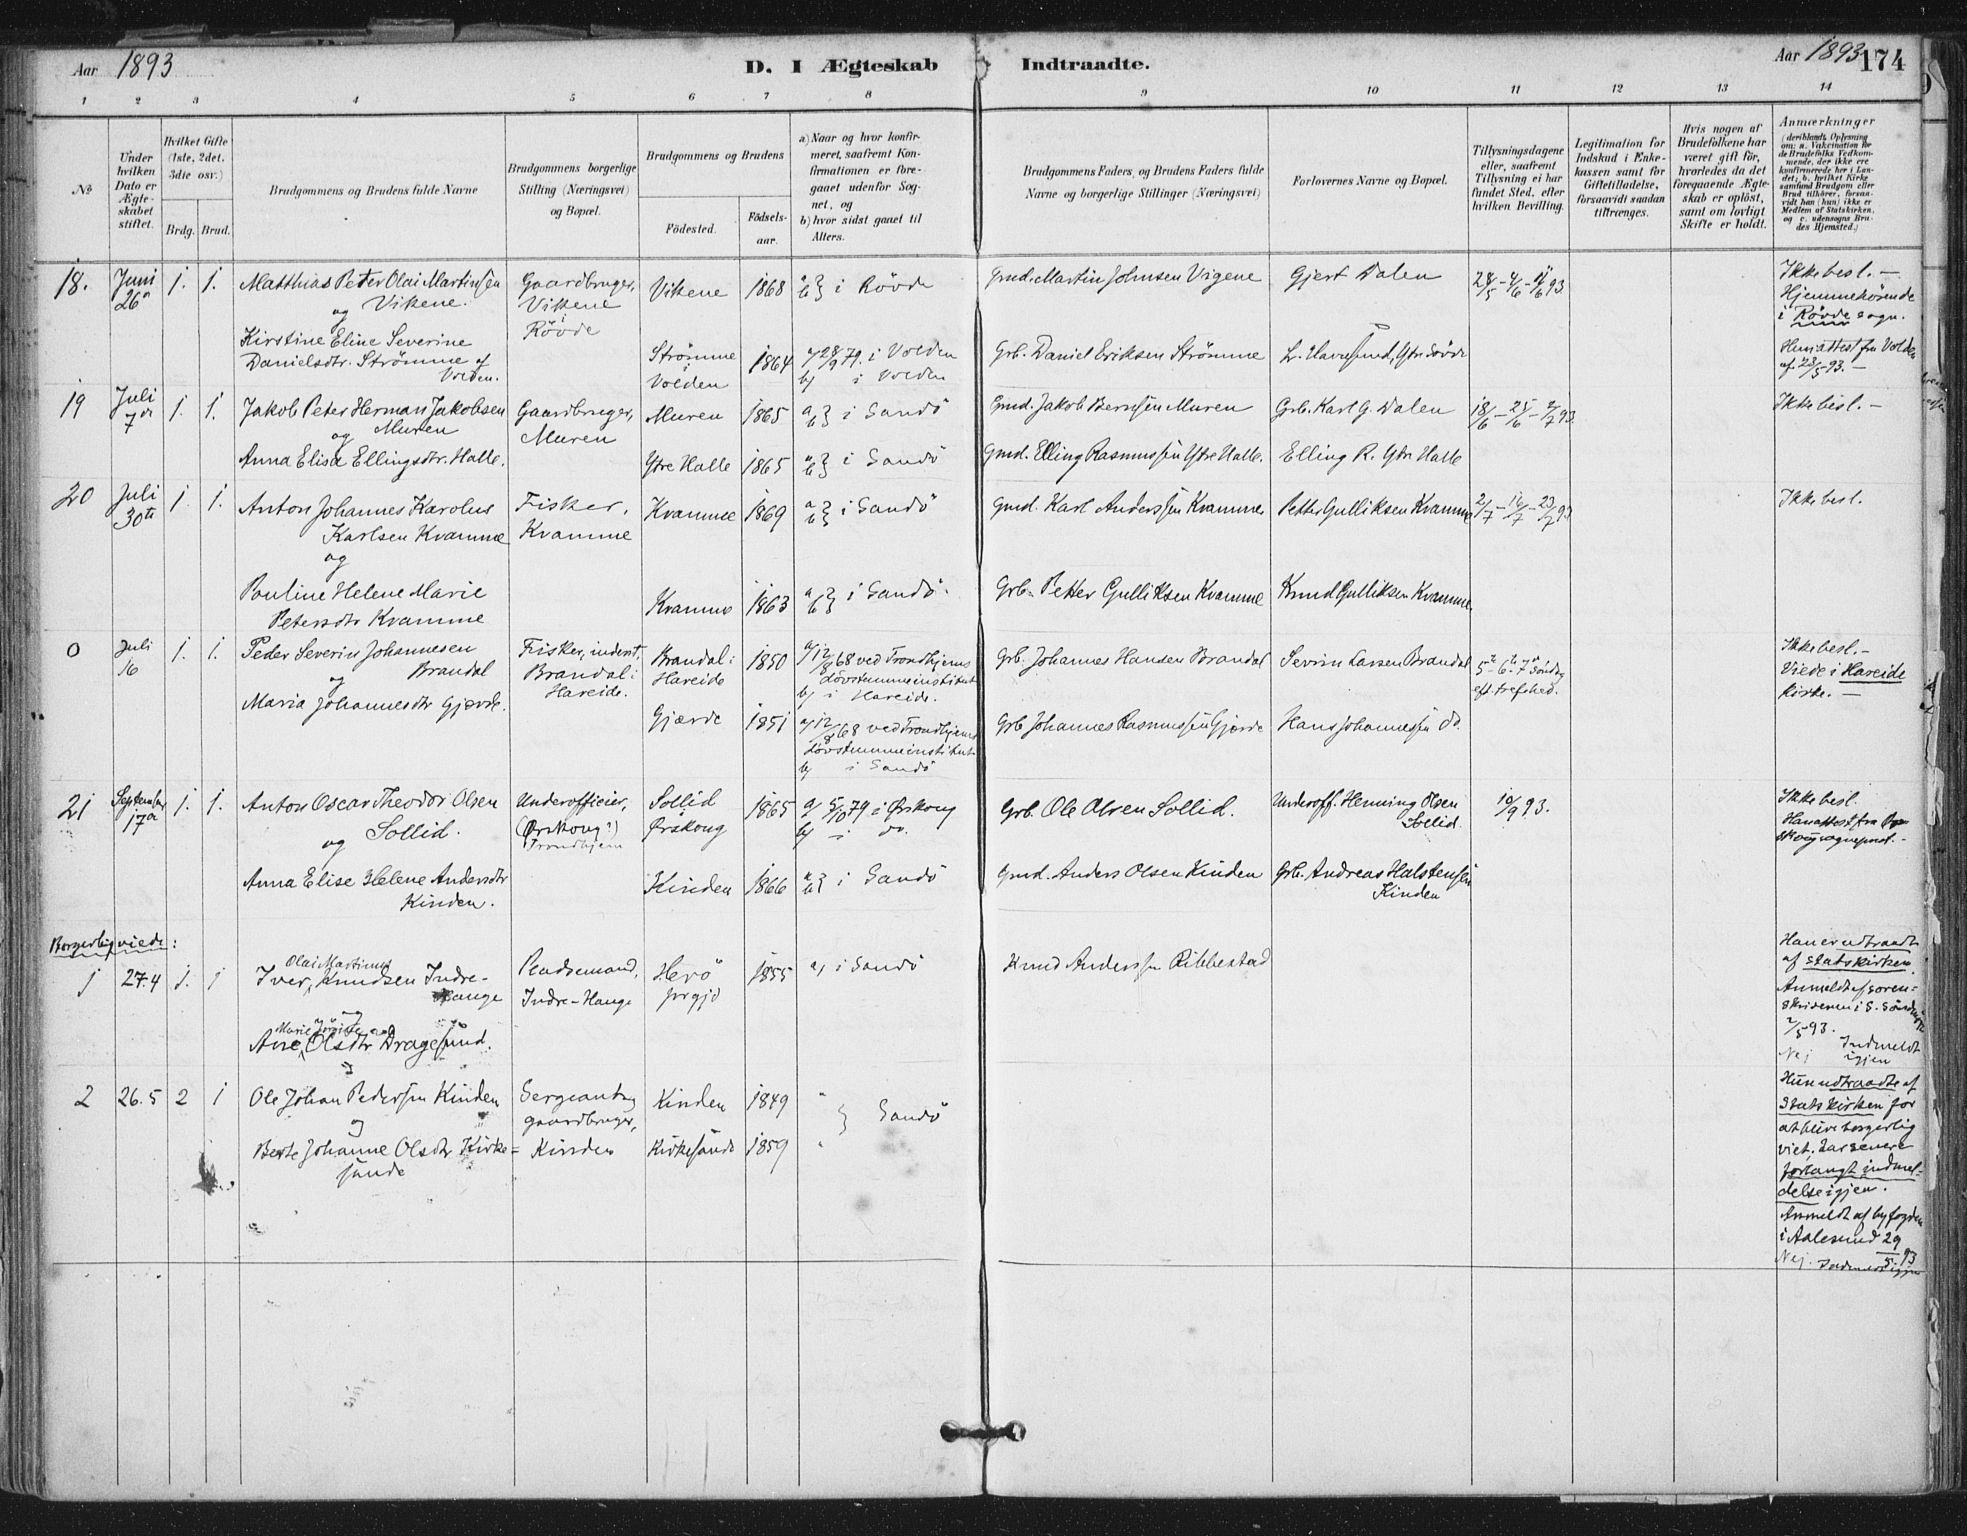 Aar 1893
D. I Ægteskab Indtraadte.
Aar 1893
174
1 2 3 4 5 6 7 8 9 10 11 12 13 14
№
Under hvilken Dato er Ægte-skabet stiftet.
Hvilket Gifte (1ste, 2det. 3die osv.)
Brdg. Brud.
Brudgommens og Brudens fulde Navne
Brudgommens borgerlige Stilling (Næringsvei) og Bopæl.
Brudgommens og Brudens
Fødested.
Fødsels-aar.
a) Naar og hvor konfir-meret, saafremt Kon-firmationen er fore-gaaet udenfor Sog-net, og
b) hvor sidst gaaet til Alters.
Brudgommens Faders, og Brudens Faders fulde Navne og borgerlige Stillinger (Næringsvei)
Forlovernes Navne og Bopæl.
Tillysningsdagene eller, saafremt Tillysning ei har fundet Sted, efter hvilken Bevilling.
Legitimation for Indskud i Enke-kassen samt for Giftetilladelse, forsaavidt saadan tiltrænges.
Hvis nogen af Brudefolkene har været gift før, hvorledes da det foregaaende Ægte-skab er opløst, samt om lovligt Skifte er holdt.
Anmærkninger
(deriblandt Oplysning om: a. Vakcination for de Brudefolks Vedkom-mende, der ikke ere konfirmerede her i Lan-det; b. hvilket Kirke samfund Brudgom eller Brud tilhører, forsaa-vidt han (hun) ikke er Medlem af Statskirken, og c. udensogns Bru-des Hjemsted.)
18. Juni 26 1. 1. Matthias Peter Olai Martinsen Vikene.
og
Gaardbruger, Vikene i Rövde
Vikene 1868 a b} i Rövde
Gmd. Martin Johnsen Vigene
Gjert Dalen
28/5 - 4/6 - 11/6 93.
Ikke besl. —
Hjemmehörende i Rövde sogn.
Kirstine Eline Severine
Danielsdtr. Strömme af Volden.
Strömme i Volden 1864 a) 28/9 79. i Volden
b) i Volden
Grb. Daniel Eriksen Strömme
Hun attest fra Volden af 23/5 93. —
19 Juli 7de 1. 1. Jakob Peter Herman Jakobsen Muren
og
Gaardbruger, Muren
Muren 1865 a b} i Sandö
Gmd. Jakob Berntsen Muren
Grb. Karl G. Dalen
18/6 - 25/6 - 2/7 93.
Ikke besl. —
Anna Elisa Ellingsdtr. Halle.
Ytre Halle 1865 a b} i Sandö
Gmd. Elling Rasmussen Ytre Halle.
Elling R. Ytre Halle
20 Juli 30te 1. 1. Anton Johannes Karolus
Karlsen Kvamme
og
Fisker, Kvamme
Kvamme 1869 a b} i Sandö
Gmd. Karl Anderssen Kvamme
Petter Gulliksen Kvamme
2/7 - 16/7 - 23/7 93
Ikke besl.
Pauline Helene Marie
Petersdtr Kvamme
Kvamme 1863 a b} i Sandö.
Grb. Petter Gulliksen Kvamme
Knud Gulliksen Kvamme
0 Juli 16 1. 1. Peder Severin Johannesen Brandal
og
Fisker, inderst, Brandal i Hareide.
Brandal i Hareide 1850
a) 12/8 68 ved Trondhjems
dövstummeinstitut
b) i Hareide.
Grb. Johannes Hansen Brandal
Severin Larsen Brandal
5te - 6te - 7de Sönd
eft. trefhed.
Ikke besl. —
Viede i Hareide kirke. —
Maria Johannesdtr Gjærde.
Gjærde 1851
a) 12/8 68 ved Trondhjems
dövstummeinstitut
b) i Sandö
Grb Johannes Rasmussen Gjærde
Hans Johannessen do.
21 September 17de 1. 1. Anton Oscar Theodor Olsen
og Sollid.
Underofficier, (Ørskoug?) Trondhjem
Sollid Ørskoug 1865 a) 5/10 79 i Ørskoug
b) i do.
Grb. Ole Olsen Sollid.
Underoff. Henning Olsen Solid
10/9 93.
Ikke besl.
Han attest fra Ør-skoug sognepræst. —
Anna Elise Helene Andersdtr
Kinden.
Kinden 1866 a b} i Sandö
Gmd. Anders Olsen Kinden
Grb. Andreas Halstensen Kinden
Borgerlig viede:
1 27.4 1. 1 Iver Olai Martinus Knudsen Indre-Hauge
og
Pladsemand, Indre-Hauge
Herö prgjd 1855 a) i Sandö
Knud Anderssen Ribbestad
Han er udtraadt af statskirken.
Anmeldt af soren-skriveren i S. Söndmöre 2/5 93.
Nej Indmeldt igjen
Ane Marie Olsdtr Dragesund.
2 26.5 2 1 Ole Johan Pedersen Kinden
og
Sergeant og gaardbruger, Kinden
Kinden 1849
} Sandö
Berte Johanne Olsdtr Kirke=sande
Kirkesande 1859
Hun udtraadte af Statskirken for at blive borgerlig viet, har senere forlangt indmel-delse igjen.
Anmeldt af byfogden i Aalesund 29/5 93
Nej. Indmeldt igjen